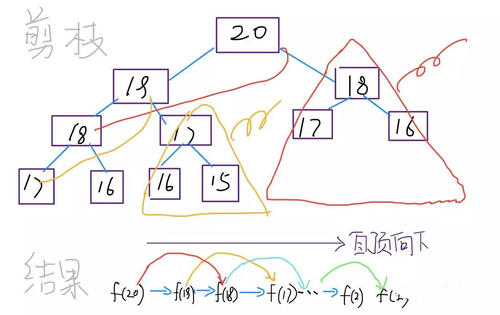 剪枝
20
19 18
18 17 17 16
17 16 16 15
自顶向下
结果
f(20) f(19) f(18) f(17) ... f(2) f(1)